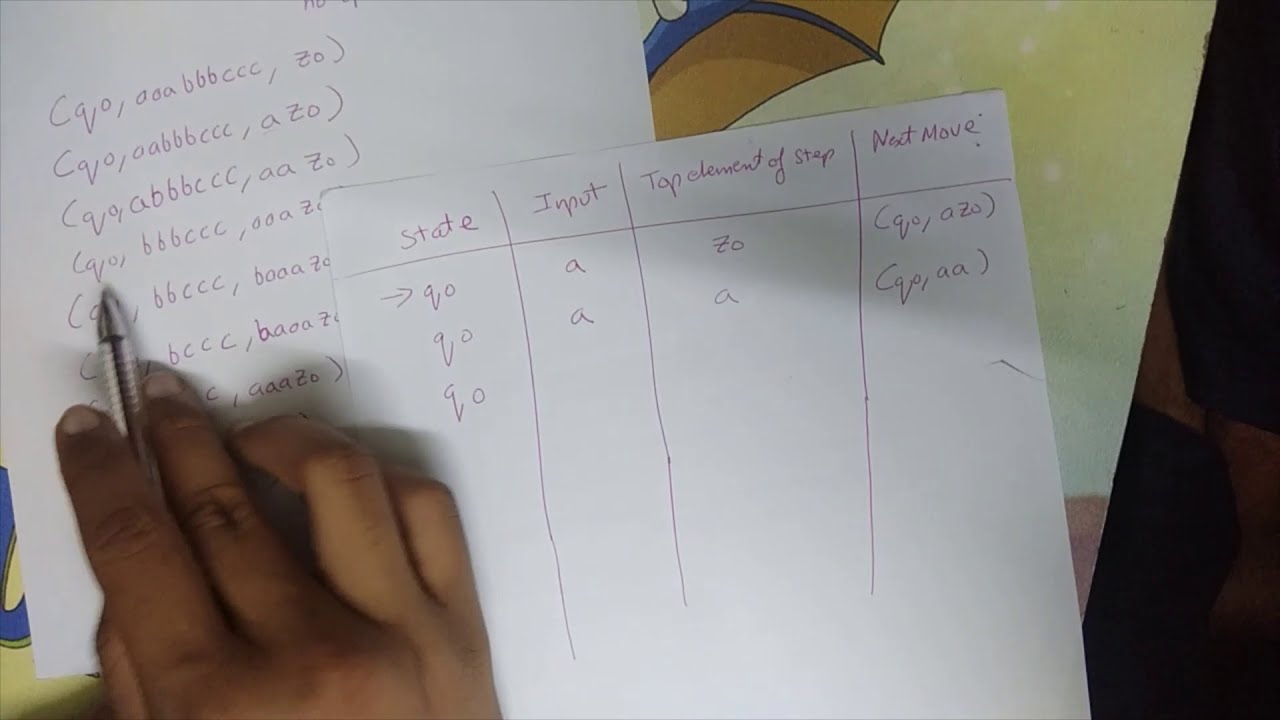 (q0, aaabbbccc, z0)
(q0, aabbbccc, az0)
(q0, abbbccc, aaz0)
(q0, bbbccc, aaaz0
bbccc, baaaz0
bccc, baaaz0
c, aaaz0)
State Input Top element of step Next Move:
→ q0 a z0 (q0, az0)
q0 a a (q0, aa)
q0